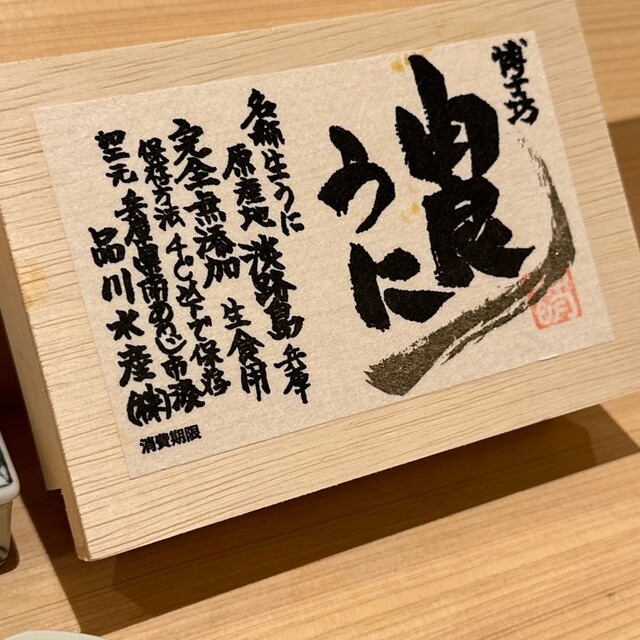 由良
うに
名称生うに
原産地 淡路島 兵庫
完全無添加 生食用
保存方法 4℃以下で保冷
加工元 兵庫県南あわじ市湊
品川水産(株)
消費期限